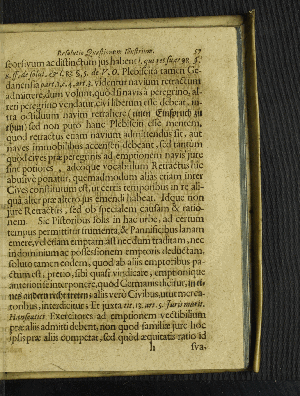 Resolutio Quæstionum Illustrium. 57
seorsivum ac distinctum jus habent,
ff. de solut. §. 5. de V. O. Plebiscita tamen Ge-
danensia part. 1. c. 4. art. 3. videntur navium retractum
admittere, dum volunt, quod si navis à peregrino, al-
teri peregrino vendatur, civi liberum esse debeat, in-
tra octiduum navim retrahere (einen Einspruch zu
thun) sed non puto hanc Plebisciti esse mentem,
quod retractus etiam navium admittendus sit, aut
naves immobilibus accenseri debeant, sed tantum
quòd cives præ peregrinis ad emptionem navis jure
sint potiores, adeoque vocabulum Retractus hic
abusivè ponatur, quemadmodum alias etiam inter
Cives constitutum est, ut certis temporibus in re ali-
quâ alter præ altero jus emendi habeat. Idque non
jure Retractus, sed ob specialem causam & ratio-
nem. Sic Pistoribus solis in hac urbe, ad certum
tempus permittitur frumenta, & Pannificibus lanam
emere, vel etiam emptam ast necdum traditam, nec
in dominium ac possessionem emptoris deductam,
soluto tamen eodem, quod ab aliis emptoribus pa-
ctum est, pretio, sibi quasi vindicare, emptionique
anteriori se interponere, quòd Germanis dicitur, in ei-
nes andern recht treten, aliis verò Civibus, uti merca-
toribus, interdicitur. Et juxta tit. 13. art. 5. Juris marit.
Hanseatici Exercitores ad emptionem vectibilium
præ aliis admitti debent, non quod familiæ jure hoc
ipsis præ aliis competat, sed quòd æquitatis ratio id
h sva-